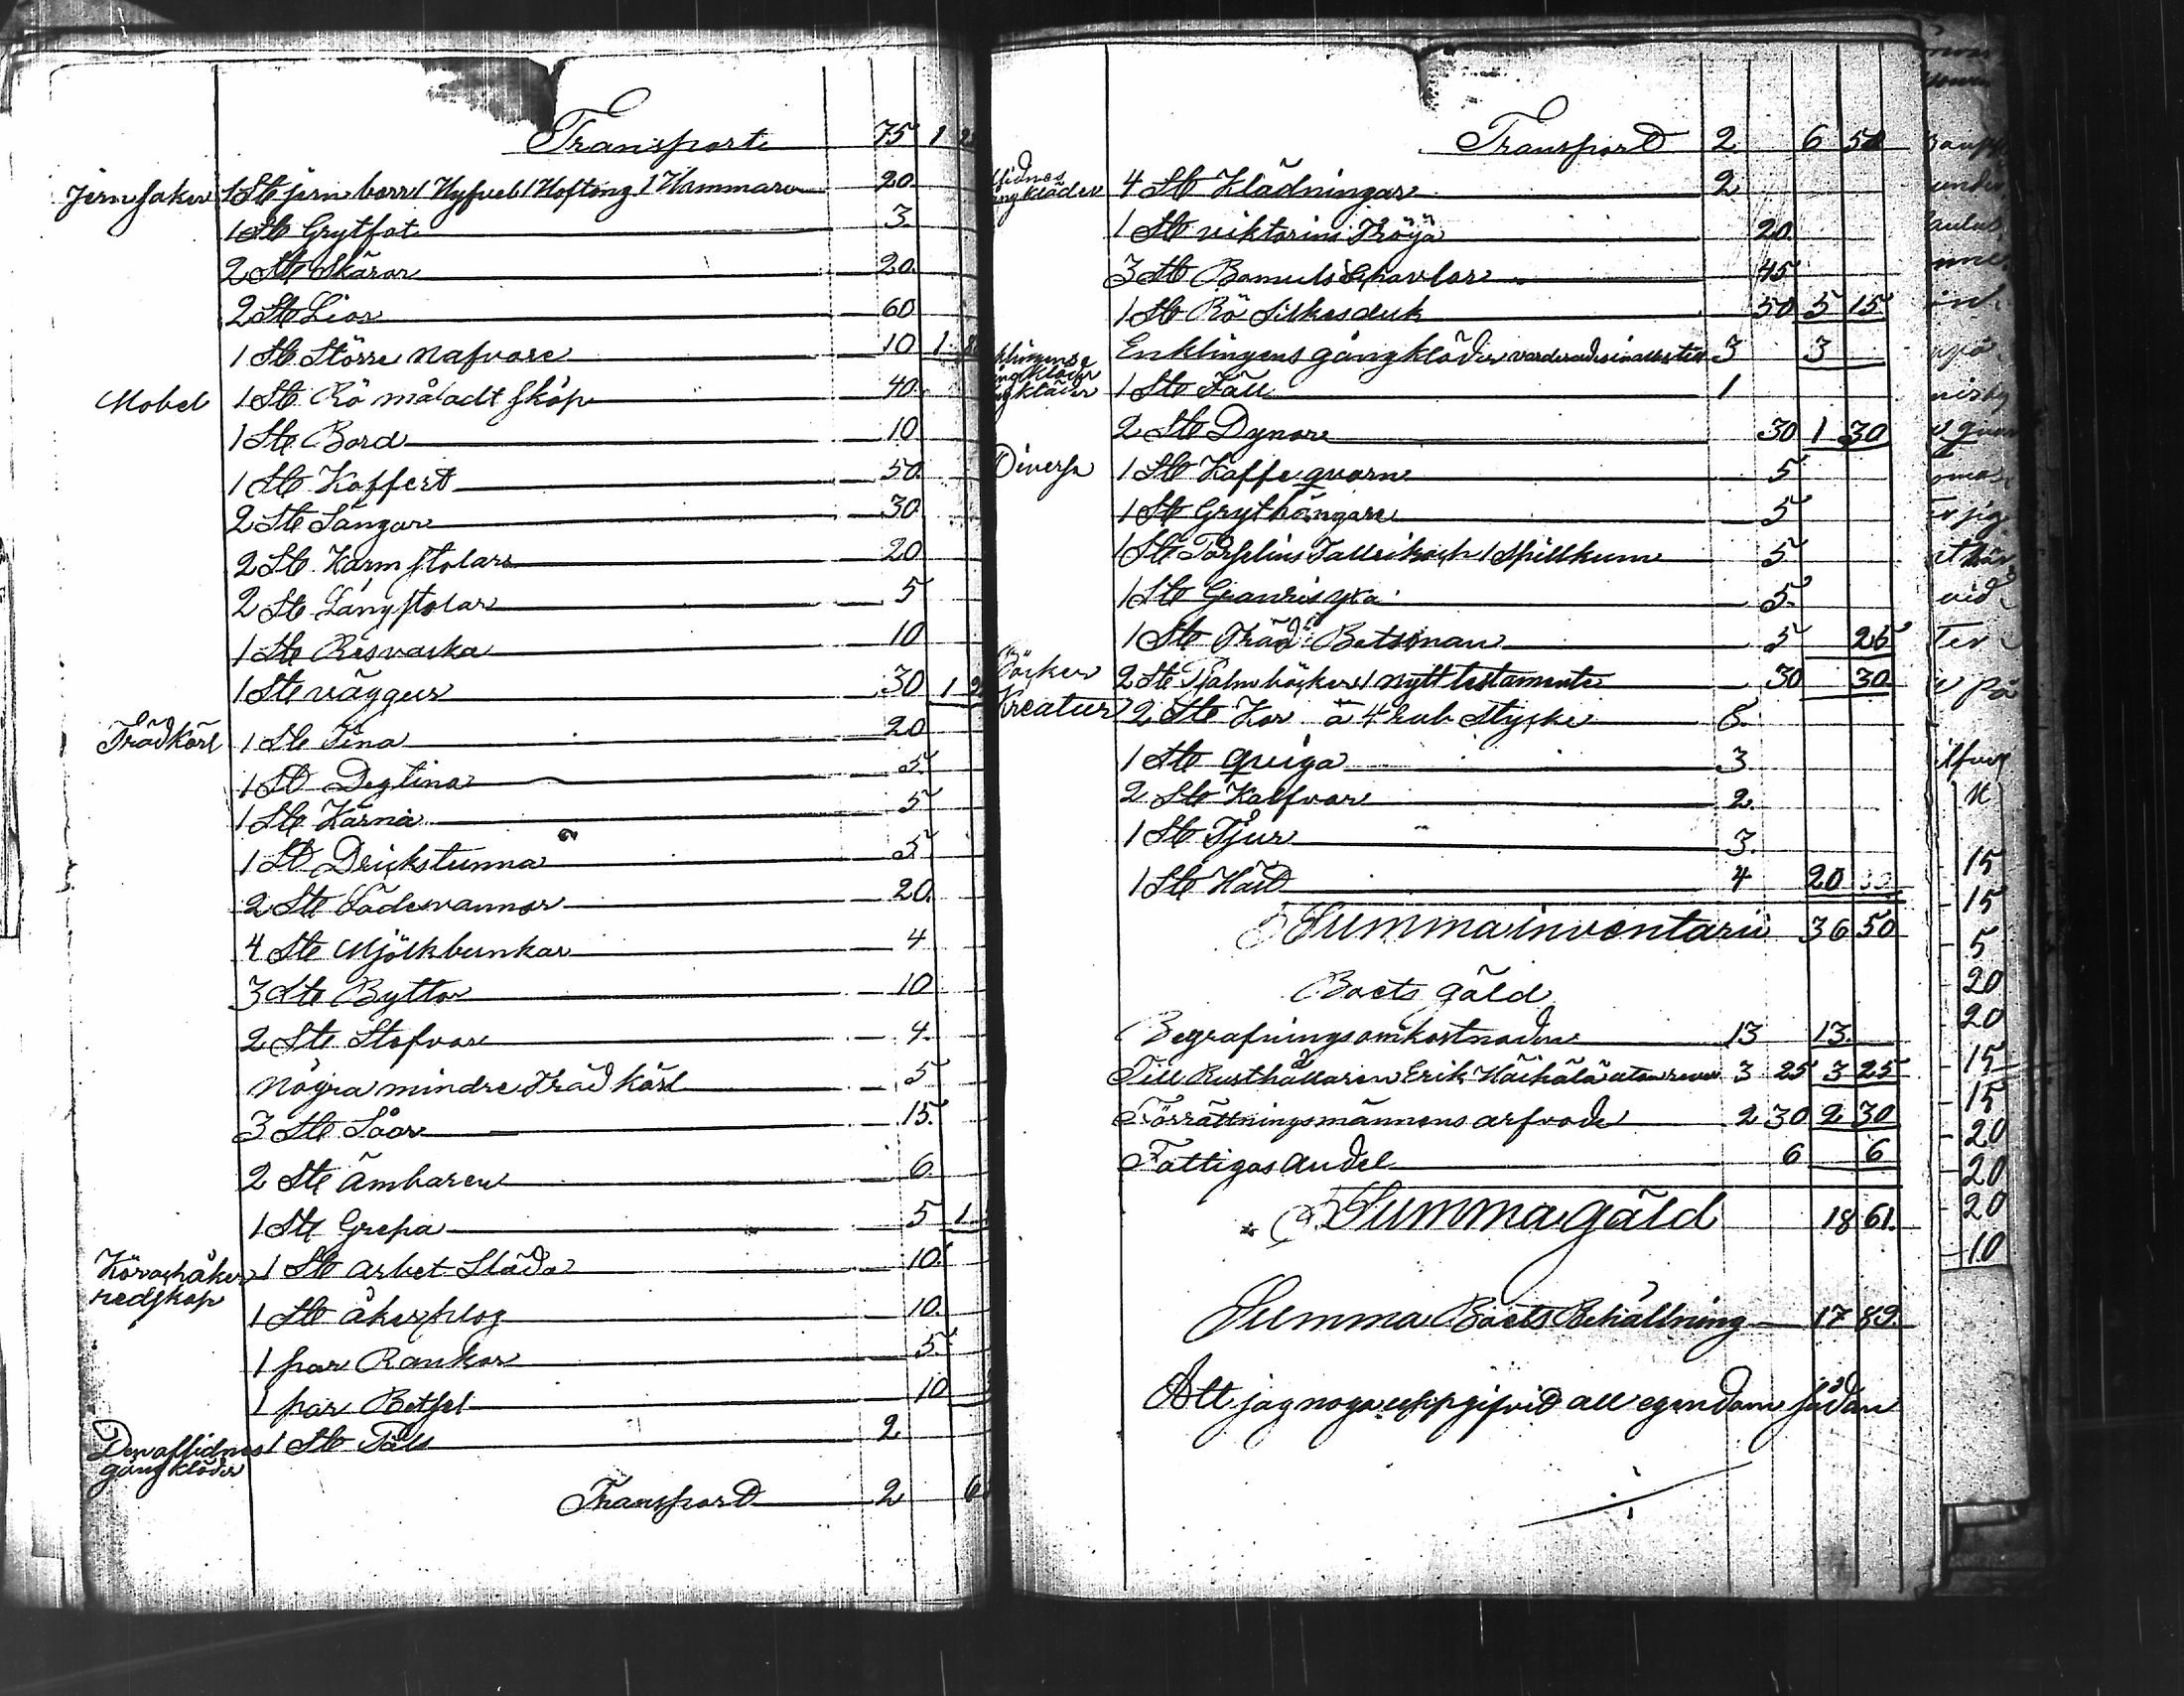 Transport 75 1
Jern saker 1 St jern borr 1 Hyfvel 1 Hoftong 1 Hammare 20
1 St Grytfat 3
2 St Skäror 20
2 St Lior 60
1 St Större Nafvare 10 1
Mobel 1 St Rö måladt skåp 40
1 St Bord 10
1 St Koffert 50
2 St Sängar 30
2 St Karm stolar 20
2 St Lång stolar 5
1 St Resvaska 10
1 St väggur 30 1
Träd Kärl 1 St Tina 20
1 St Degtina 5
1 St Kärna 5
1 St Drickstunna 5
2 St Sädesvannor 20
4 St Mjölkbunkar 4
3 St Byttor 10
2 St Stofvor 4
Några mindre Träd kärl 5
3 St Såar 15
2 St Ämbaren 6
1 St Grepa 5 1
Kör och åker redskap 1 St arbet Släda 10
1 St åkerplog 10
1 par Rankor 5
1 par Betsel 10
Den aflidnes gångkläder 1 St Päls 2
Transpord 2 6
Transpord 2 6 50
lidnes ång kläder 4 St Klädningar 2
1 St viktorins Tröya 20
3 St Bomuls Schavlar 45
1 St Rö Silkesduk 50 5 15
klingens Enklingens gångkläder varderades in alles till 3 3
ng kläder 1 St Fäll 1
2 St Dynor 30 1 30
Diversa 1 St Kaffe qvarn 5
1 St Grythängare 5
1 St Porselins Tallrik och 1 Spillkum 5
1 St Granris yxa 5
1 St Träd Betsman 5 25
Böcker 2 St Psalmböcker 1 nytt testamente 30 30
Kreatur 2 St Kor à 4 rub Stycke 8
1 St qviga 3
2 St Kalfvar 2
1 St Tjur 3
1 St Häst 4 20
Summa inventarii 36 50
Boets gäld
Begrafningsomkostnaden 13 13
Till Rusthållaren Erik Häihälä utan revers 3 25 3 25
Förrättningsmännens arfvode 2 30 2 30
Fattigas andel 6 6
Summa gäld 18 61
Summa Boets Behållning 17 89
Att jag noga uppgifvid all egendom sådan
15
15
5
20
20
15
15
20
20
20
10